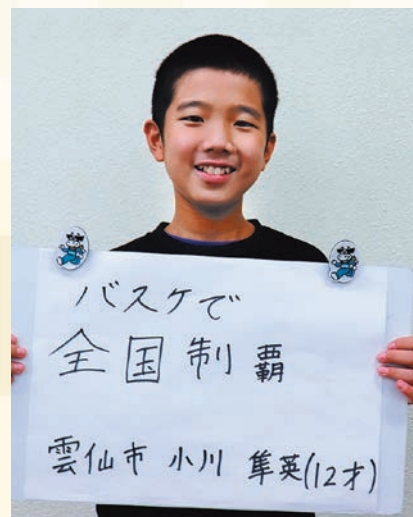 バスケで
全国制覇
雲仙市 小川 隼英(12才)